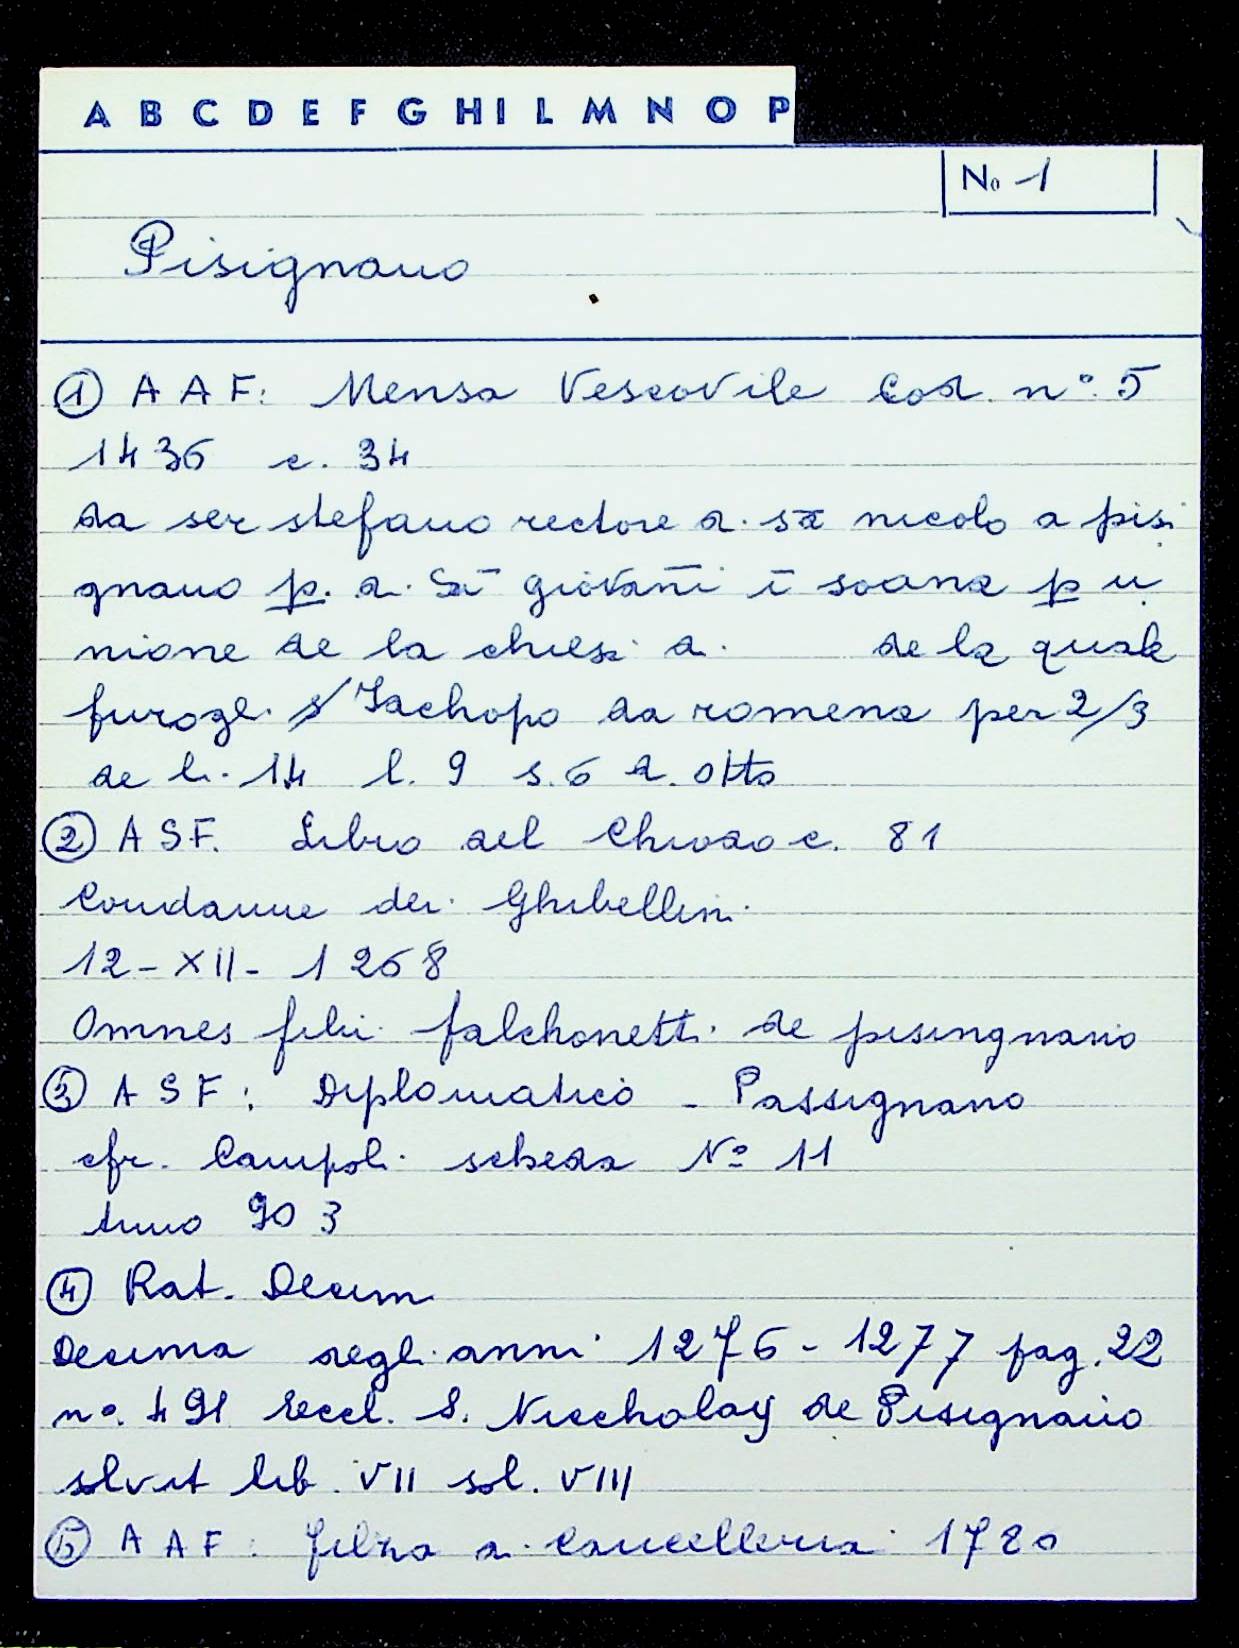 A B C D E F G H I L M N O P
No 1
Pisignano
① A A F: Mensa Vescovile Cod. n°. 5
1436 c. 34
da ser stefano rectore di sā nicolo a pisi
gnano p. di Sā giovañi ī soana p u
nione de la chiesi di de la quale
di Jachopo da romena per 2/3
de li. 14 l. 9 s. 6 d. otto
② A S F. Libro del Chiodo c. 81
Condanne dei Ghibellini
12 - XII - 1268
Omnes filii falchonetti de pisingnano
③ A S F: Diplomatico - Passignano
cfr. Campoli scheda N° 11
Anno 903
④ Rat. Decim
Decima degli anni 1276 - 1277 pag. 22
n°. 491 Eccl. S. Niccholay de Pisignano
solvit lib. VII sol. VIII
⑤ A A F: filza di Cancelleria 1780